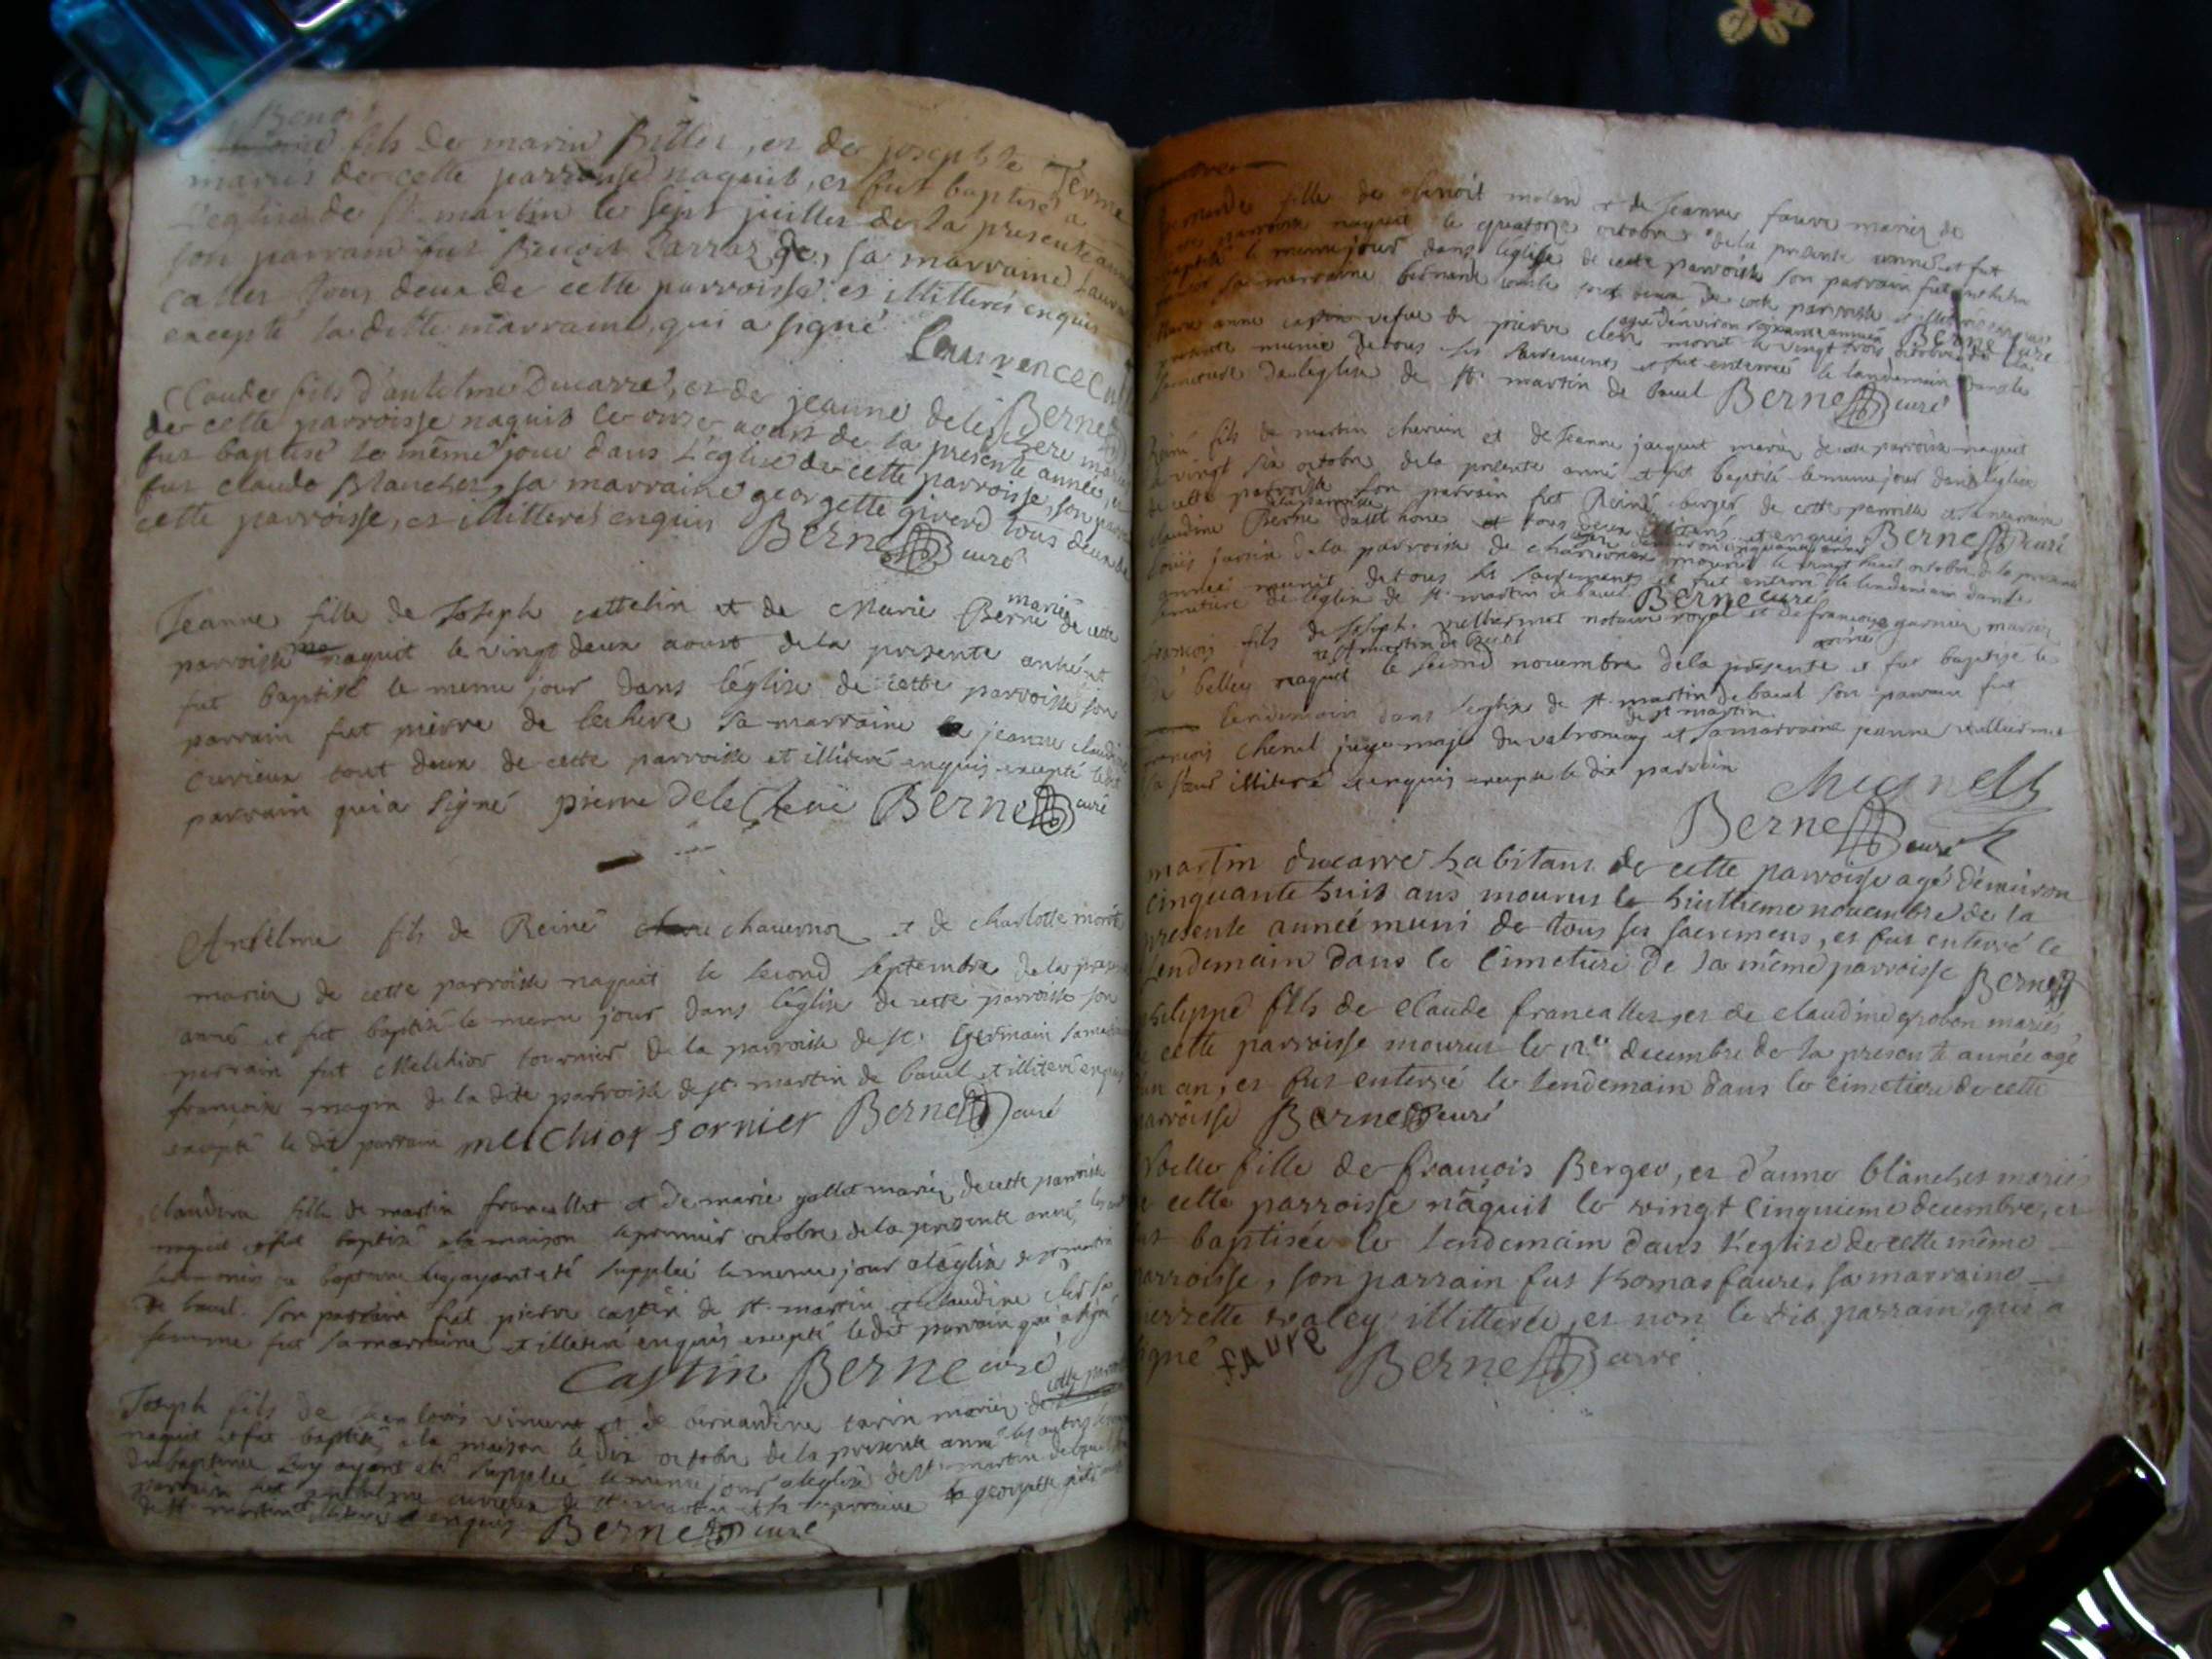 Beno
fils de marin Billet, et de josephte Terme
mariés de cette parroisse naquit, et fut baptisé a
l'eglise de st. martin le sept juillet de la presente année
son parrain fut Benoit Carraz, sa marraine Laurence
Callet tous deux de cette parroisse, et illitterés enquis
excepté la ditte marraine, qui a signé
Laurence
Claude fils d'antelme Ducarre, et de jeanne deleschere mariés
de cette parroisse naquit le onze aoust de la presente année, et
fut baptisé le même jour dans L'église de cette parroisse, son parrain
fut claude Blanchet, sa marraine georgette giverd tous deux de
cette parroisse, et illitterés enquis Berne curé
Jeanne fille de Joseph cattelin et de Marie Berne mariés de cette
parroisse naquit le vingt deux aoust de la presente année et
fut baptisé le meme jour dans l'église de cette parroisse son
parrain fut pierre de leschere sa marraine jeanne claudine
curieux tout deux de cette parroisse et illiteré enquis excepté le dit
parrain qui a signé pierre Berne curé
Antelme fils de Reiné chavernoz et de charlotte
mariez de cette parroisse naquit le second septembre de la presente
anné et fut baptisé le meme jour dans l'église de cette parroisse son
parrain fut Melchior tournier de la parroisse de st. Germain sa marraine
francoise magnin de la dite parroisse de st. martin de bavel et illiteré enquis
excepté le dit parrain melchior sornier Berne curé
Claudine fille de martin francallet et de marie gallet mariez de cette parroisse
naquit et fut baptisé a la maison le premier octobre de la presente anné, les autres
ceremonies du bapteme luy ayant eté supplée le meme jour a l'église de st martin
de bavel. son parrain fut pierre castin de st. martin et claudine clet sa
femme fut sa marraine et illiteré enquis excepté le dit parrain qui a signé
Castin Berne curé
Joseph fils de jean louis vincent et de bernardine tarin mariez de cette parroisse
naquit et fut baptisé a la maison le dix octobre de la presente anné les autres
du bapteme luy ayant eté supplée le meme jour a l'église de st martin de bavel
parrain fut anthelme curieux de st martin et sa marraine georgette
de st martin et illiteré enquis Berne curé
Bernarde fille de benoit molan et de Jeanne faure mariez de
cette parroisse naquit le quatorze octobre de la presente anné et fut
baptisé le meme jour dans l'église de cette parroisse son parrain fut anthelme
faure sa marraine bernarde tout deux de cette parroisse et illiterés enquis
Berne curé
Marie anne castin vefve de pierre clerc agé d'environ soixante années morit le vingt trois octobre de la
presente munie de tous les sacrements et fut enterrée le landemain dans le
cimetiere de l'église de st. martin de bavel Berne curé
Reiné fils de martin chervin et de Jeanne jacquet mariez de cette parroisse naquit
le vingt six octobre de la presente anné et fut baptisé le meme jour dans l'église
de cette parroisse son parrain fut Reiné berger de cette parroisse et sa marraine
claudine Berne tous deux illiterés et enquis Berne curé
Louis de la parroisse de agé d'environ cinquante années mourut le vingt huit octobre de la presente
année munit de tous les sacrements et fut enterré le lendemain dans le
cimetiere de l'église de st martin de bavel Berne curé
françois fils de Joseph vuilliermet notaire royal et de francoise garnier mariez
de belley naquit le second novembre de la presente année et fut baptisé le
lendemain dans l'église de st. martin de bavel son parrain fut
françois juge maje du valromey et sa marraine jeanne vuilliermet
sa sœur illiteré enquis excepté le dit parrain
Berne curé
martin ducarre habitant de cette parroisse agé d'environ
cinquante huit ans mourut le huitieme novembre de la
presente année muni de tous ses sacremens, et fut enterré le
lendemain dans le Cimetiere de la même parroisse Berne
philippe fils de claude francallet, et de claudine grobon mariés
de cette parroisse mourut le 12e decembre de la presente année agé
d'un an, et fut enterré le lendemain dans le cimetiere de cette
parroisse Berne curé
Noelle fille de françois Berger, et d'anne blanchet mariés
de cette parroisse naquit le vingt cinquieme decembre, et
fut baptisée le lendemain dans l'eglise de cette même
parroisse, son parrain fut thomas faure, sa marraine
perrette illitterée, et non le dit parrain, qui a
signé faure Berne curé